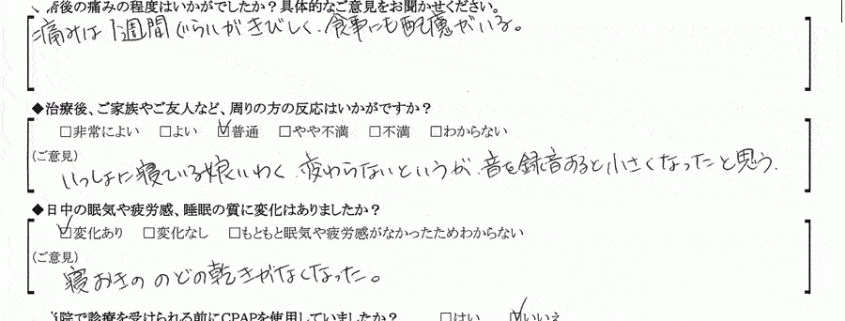 後の痛みの程度はいかがでしたか？具体的なご意見をお聞かせください。
痛みは1週間ぐらいがきびしく、食事にも配慮がいる。
◆治療後、ご家族やご友人など、周りの方の反応はいかがですか？
□非常によい　□よい　☑普通　□やや不満　□不満　□わからない
（ご意見）
いっしょに寝ている娘いわく、変わらないというが、音を録音すると小さくなったと思う。
◆日中の眠気や疲労感、睡眠の質に変化はありましたか？
☑変化あり　□変化なし　□もともと眠気や疲労感がなかったためわからない
（ご意見）
寝おきの のどの乾きがなくなった。
院で診療を受けられる前にCPAPを使用していましたか？　□はい　☑いいえ